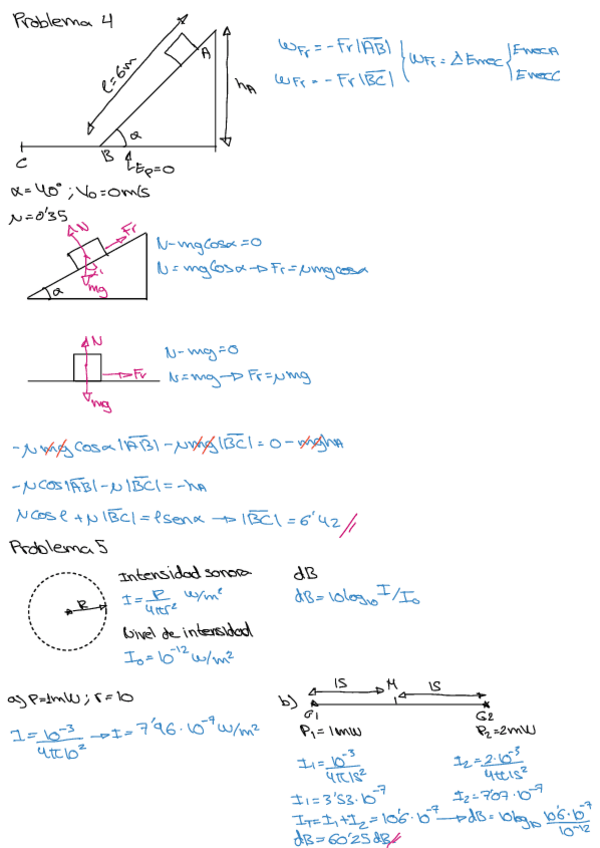 Problema 4
l=6m
A
hA
α
C
B
Ep=0
WFr = -Fr|AB|
WFr = -Fr|BC|
WFr = ΔEmec
EmecA
EmecC
α=40°; V₀=0m/s
μ=0'35
N
Fr
α
mg
α
N-mgcosα=0
N=mgcosα→Fr=μmgcosα
N
Fr
mg
N-mg=0
N=mg→Fr=μmg
-μmgcosα|AB|-μmg|BC|=0-mghA
-μcos|AB|-μ|BC|=-hA
μcosl+μ|BC|=lsenα→|BC|=6'42
Problema 5
R
Intensidad sonora
I=P/4πr² w/m²
Nivel de intensidad
I₀=10⁻¹² w/m²
dB
dB=10log₁₀ I/I₀
a) P=1mW; r=10
I=10⁻³/4π10²→I=7'96·10⁻⁷ w/m²
b)
15 M 15
G1 G2
P₁=1mW P₂=2mW
I₁=10⁻³/4π15² I₂=2·10⁻³/4π15²
I₁=3'53·10⁻⁷ I₂=7'07·10⁻⁷
IT=I₁+I₂=10'6·10⁻⁷→dB=10log₁₀ 10'6·10⁻⁷/10⁻¹²
dB=60'25dB